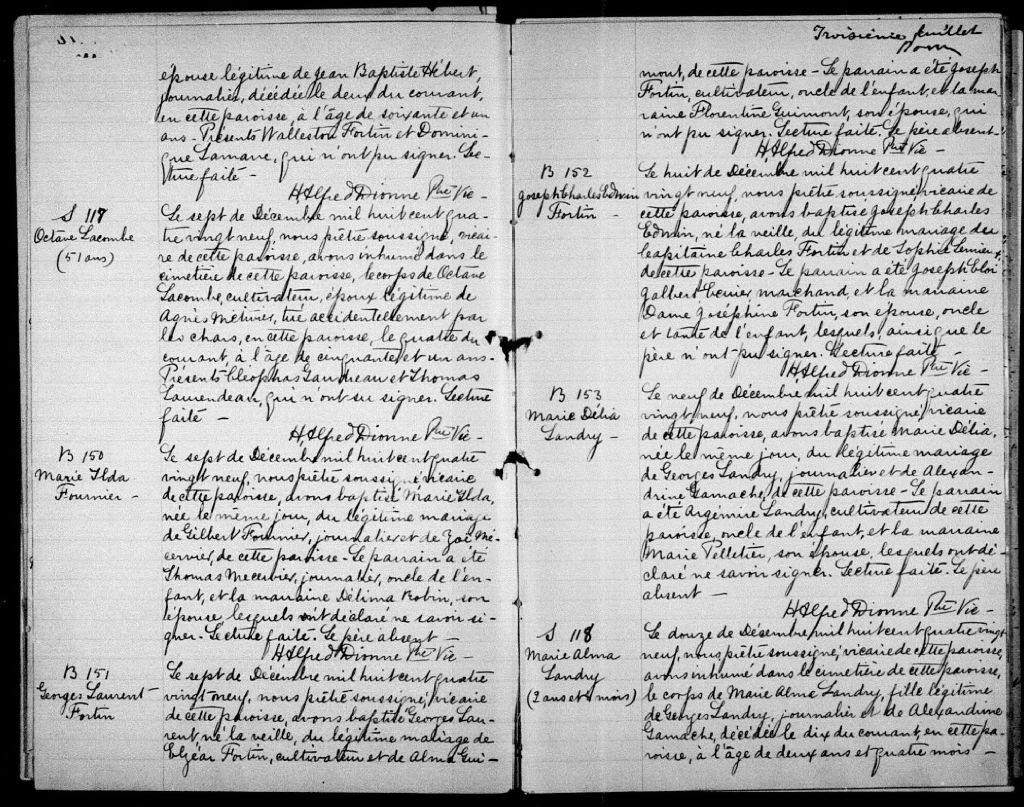 épouse légitime de Jean Baptiste Hébert,
journalier, décédée le deux du courant,
en cette paroisse, à l'âge de soixante et un
ans - Présents Walleston Fortin et Domini-
que Lamarre, qui n'ont pu signer. Lec-
ture faite -
H Alfred Dionne Ptre Vic -
S 117
Octave Lacombe
(51 ans)
Le sept de Décembre mil huit cent qua-
tre vingt neuf, nous prêtre soussigné, vicai-
re de cette paroisse, avons inhumé dans le
cimetière de cette paroisse, le corps de Octave
Lacombe, cultivateur, époux légitime de
Agnès Métivier, tué accidentellement par
les chars, en cette paroisse, le quatre du
courant, à l'âge de cinquante et un ans -
Présents Cléophas Gaudreau et Thomas
Laurendeau, qui n'ont su signer. Lecture
faite -
H Alfred Dionne Ptre Vic -
B 150
Marie Ilda
Fournier -
Le sept de Décembre mil huit cent quatre
vingt neuf, nous prêtre soussigné, vicaire
de cette paroisse, avons baptisé Marie Ilda,
née le même jour, du légitime mariage
de Gilbert Fournier, journalier et de Zoé Mé-
cervier, de cette paroisse - Le parrain a été
Thomas Mecervier, journalier, oncle de l'en-
fant, et la marraine Délima Robin, son
épouse, lesquels ont déclaré ne savoir si-
gner. Lecture faite. Le père absent -
H Alfred Dionne Ptre Vic -
B 151
Georges Laurent
Fortin
Le sept de Décembre mil huit cent quatre
vingt neuf, nous prêtre soussigné, vicaire
de cette paroisse, avons baptisé Georges Lau-
rent né la veille, du légitime mariage de
Elzéar Fortin, cultivateur et de Alma Gui-
Troisième feuillet
mont, de cette paroisse - Le parrain a été Joseph
Fortin, cultivateur, oncle de l'enfant, et la mar-
raine Florentine Guimont, son épouse, qui
n'ont pu signer. Lecture faite. Le père absent -
H Alfred Dionne Ptre Vic -
B 152
Joseph Charles Edwin
Fortin -
Le huit de Décembre mil huit cent quatre
vingt neuf, nous prêtre soussigné, vicaire de
cette paroisse, avons baptisé Joseph Charles
Edwin, né la veille, du légitime mariage du
Capitaine Charles Fortin et de Sophie Lemieux,
de cette paroisse - Le parrain a été Joseph Eloi
Galbert marchand, et la marraine
Dame Joséphine Fortin, son épouse, oncle
et tante de l'enfant, lesquels, ainsi que le
père n'ont pu signer. Lecture faite -
H Alfred Dionne Ptre Vic -
B 153
Marie Délia
Landry -
Le neuf de Décembre mil huit cent quatre
vingt neuf, nous prêtre soussigné, vicaire
de cette paroisse, avons baptisé Marie Délia,
née le même jour, du légitime mariage
de Georges Landry, journalier et de Alexan-
drine Gamache, de cette paroisse - Le parrain
a été Argémire Landry, cultivateur de cette
paroisse, oncle de l'enfant, et la marraine
Marie Pelletier, son épouse, lesquels ont dé-
claré ne savoir signer. Lecture faite. Le père
absent -
H Alfred Dionne Ptre Vic -
S 118
Marie Alma
Landry
(2 ans et 4 mois)
Le douze de Décembre, mil huit cent quatre vingt
neuf, nous prêtre soussigné, vicaire de cette paroisse,
avons inhumé dans le cimetière de cette paroisse,
le corps de Marie Alma Landry, fille légitime
de Georges Landry, journalier et de Alexandrine
Gamache, décédée le dix du courant, en cette pa-
roisse, à l'âge de deux ans et quatre mois -